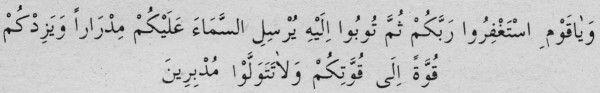 وَيَاقَوْمِ اسْتَغْفِرُوا رَبَّكُمْ ثُمَّ تُوبُوا اِلَيْهِ يُرْسِلِ السَّمَاءَ عَلَيْكُمْ مِدْرَاراً وَيَزِدْكُمْ
قُوَّةً اِلَى قُوَّتِكُمْ وَلاَتَتَوَلَّوْا مُدْبِرِينَ